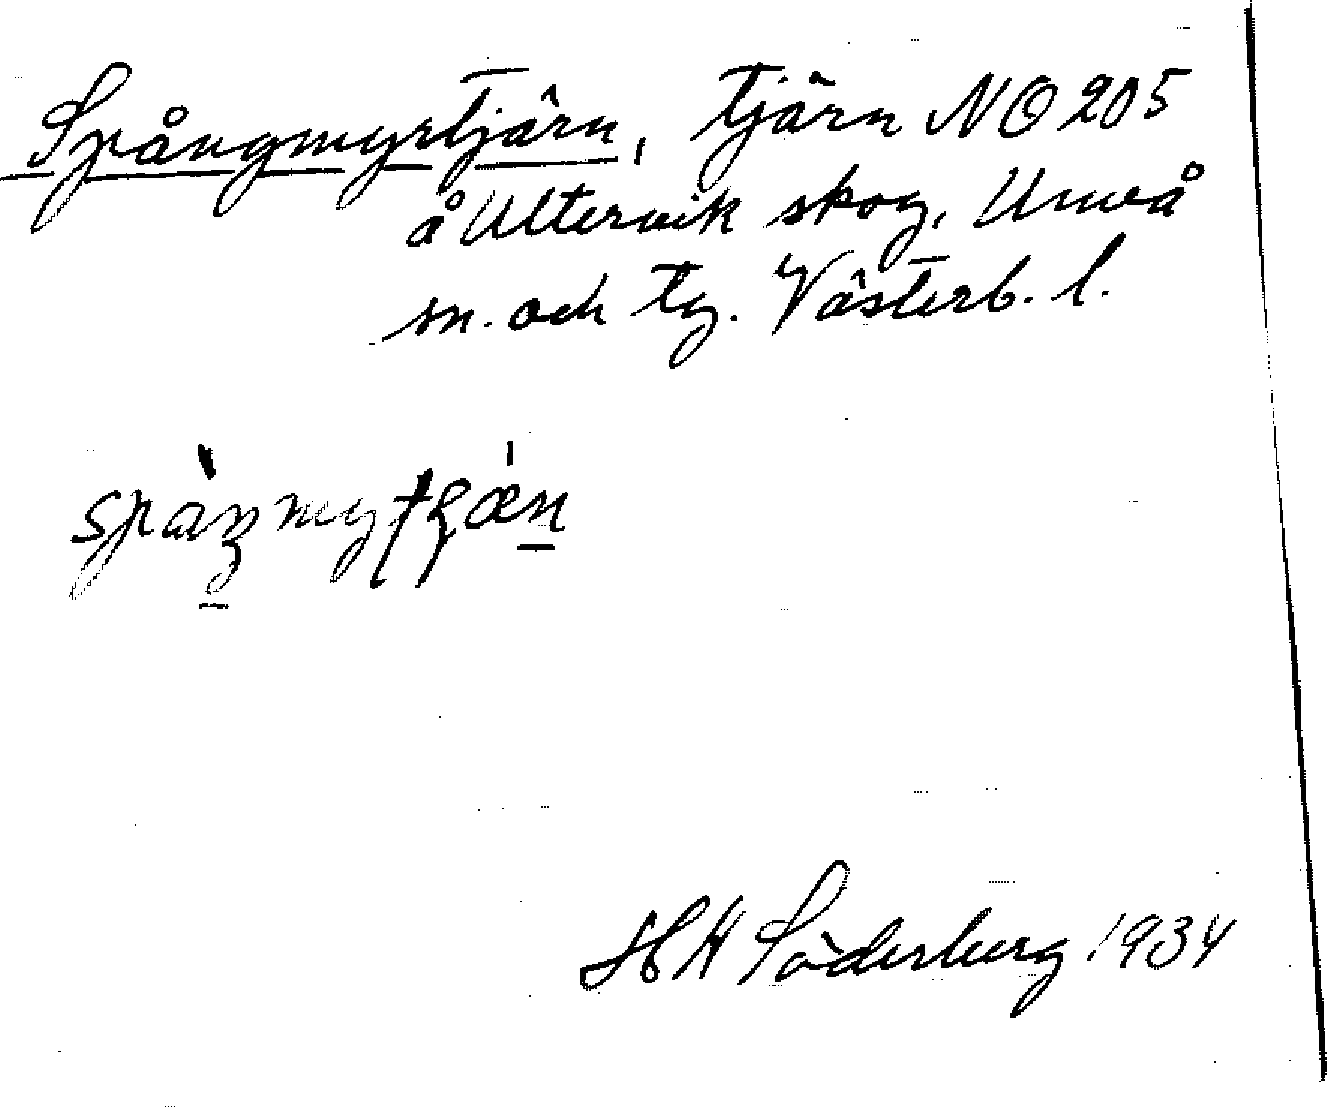 Spångmyrtjärn, tjärn NO 205
å Ultervik skog, Umeå
sn. och tg. Västerb. l.
H H Söderberg 1934